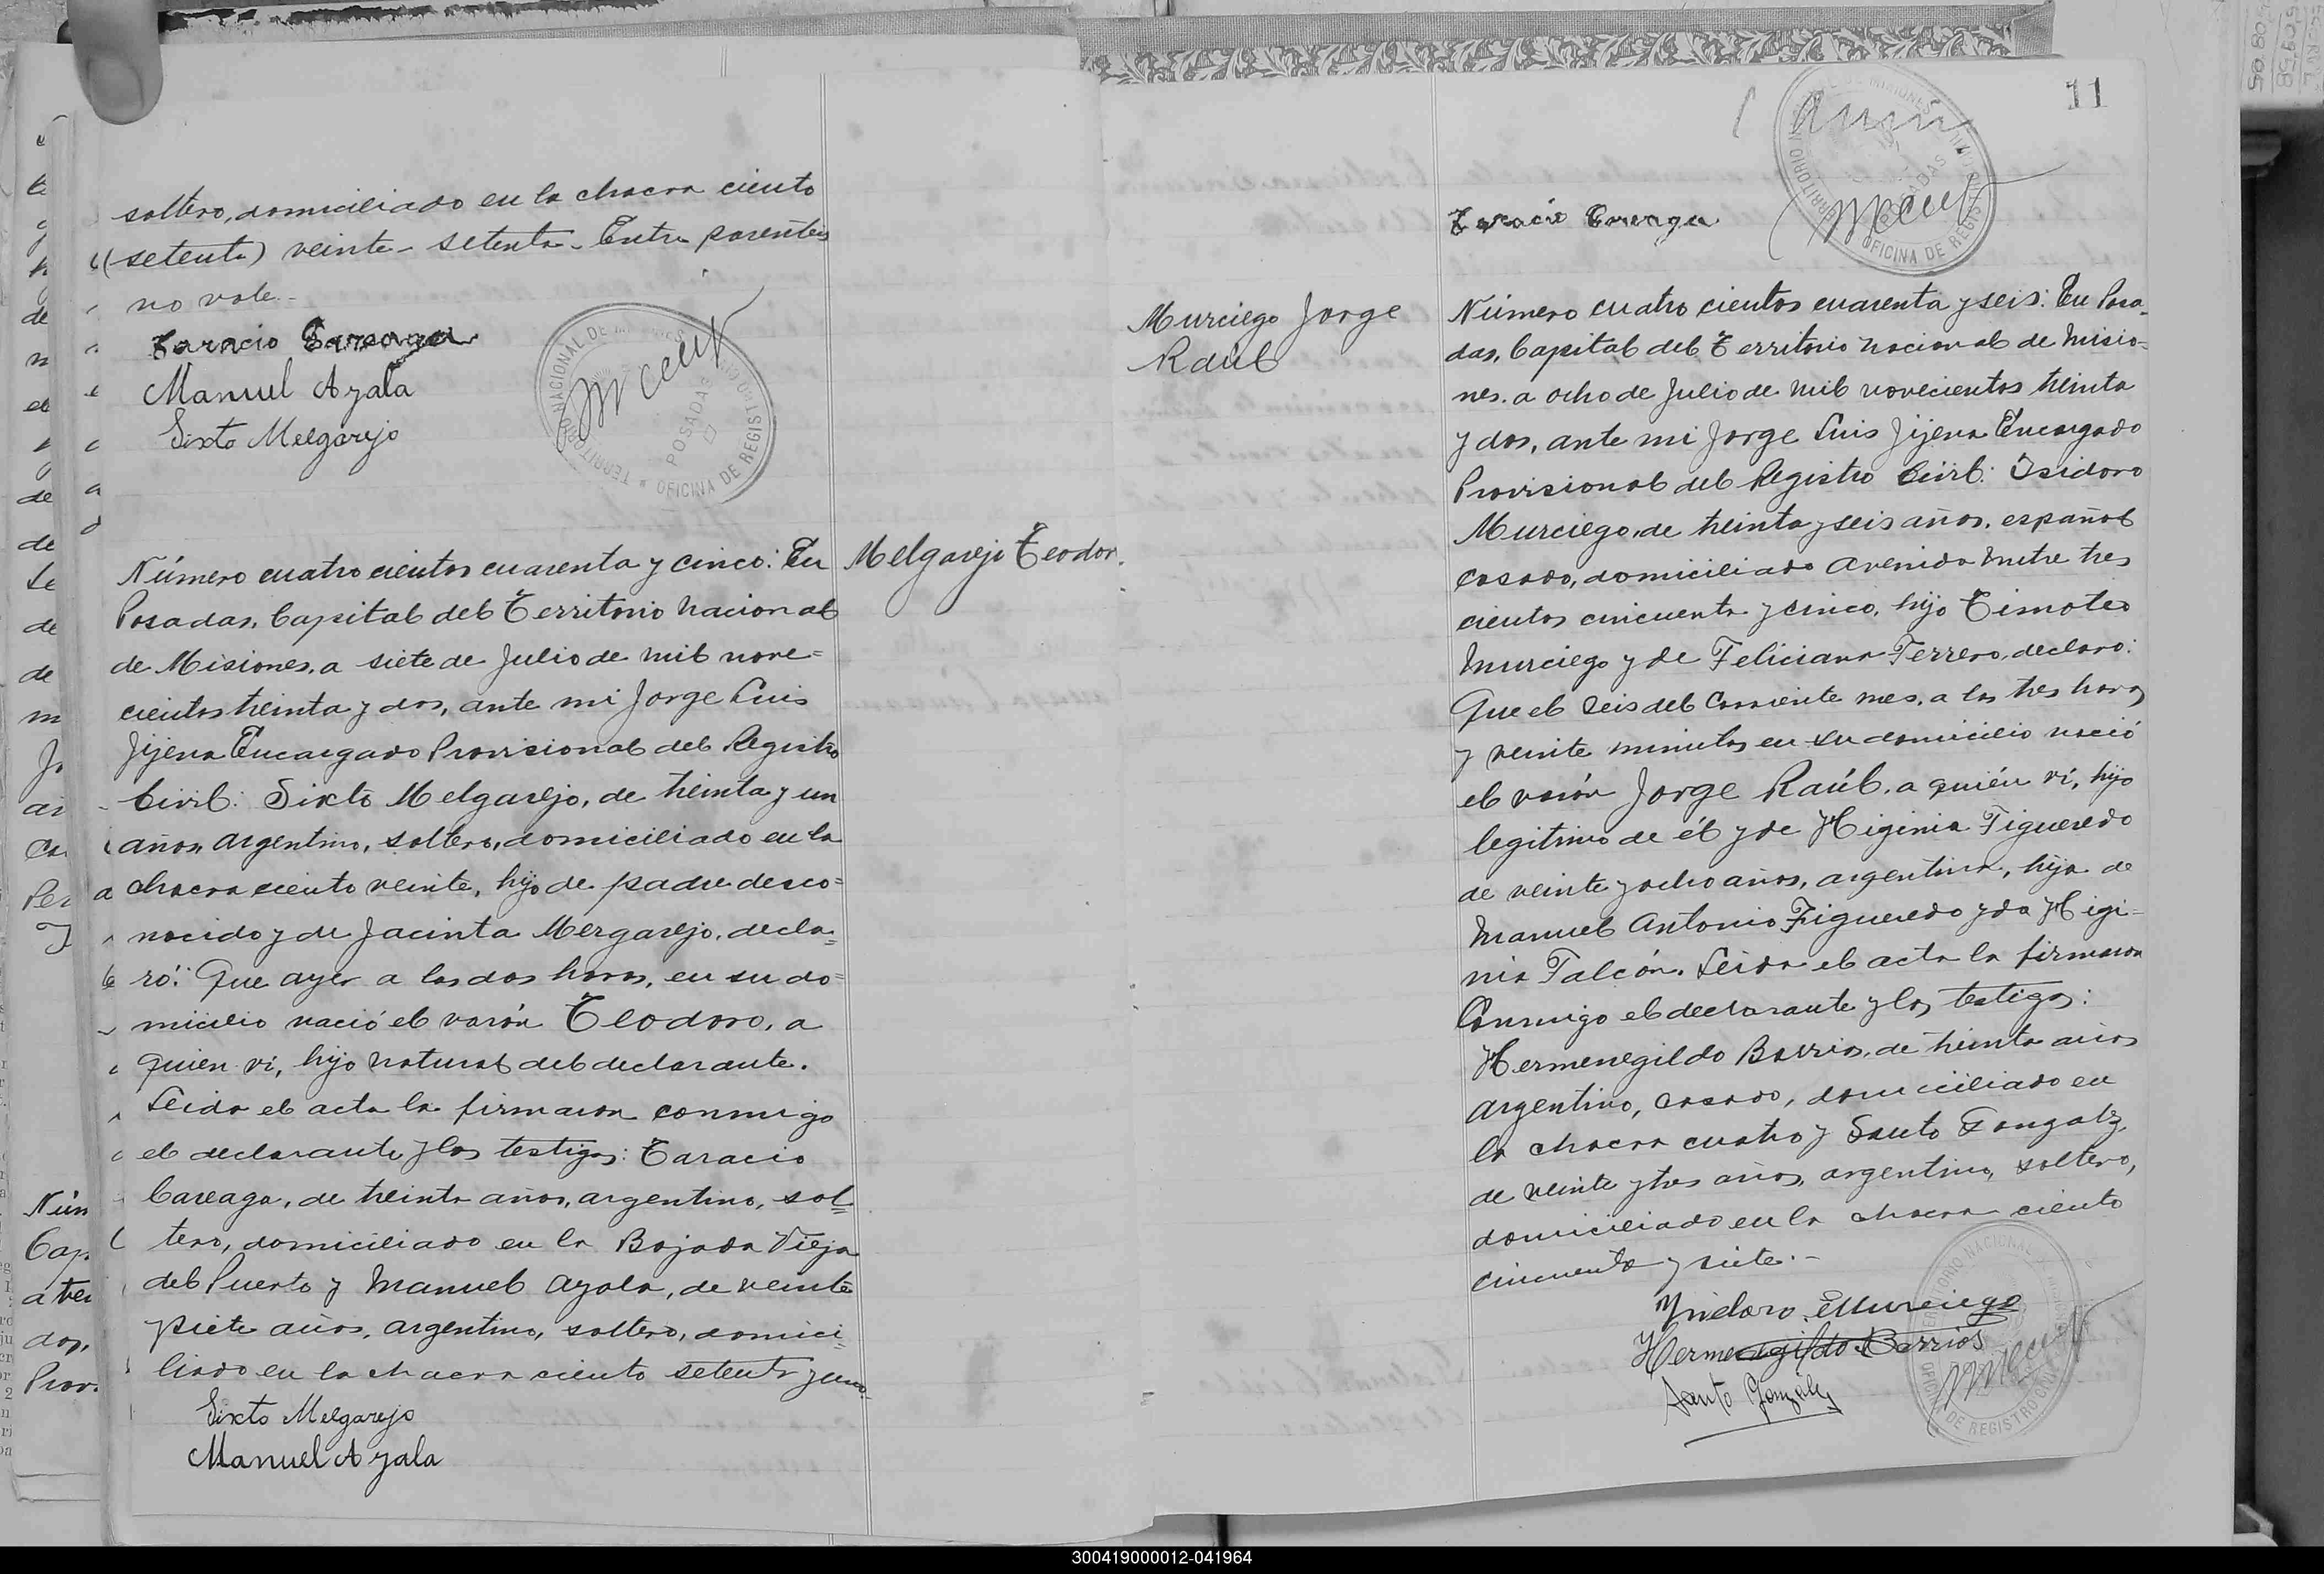 soltero, domiciliado en la chacra ciento
(setenta) veinte - setenta - Entre parentesis
no vale.-
Taracio Careaga
Manuel Ayala
Sixto Melgarejo
TERRITORIO NACIONAL DE MISIONES
POSADAS
OFICINA DE REGISTRO CIVIL
Número cuatrocientos cuarenta y cinco: En
Melgarejo Teodoro
Posadas, Capital del Territorio Nacional
de Misiones, a siete de Julio de mil nove=
cientos treinta y dos, ante mi Jorge Luis
Jijena Encargado Provisional del Registro
Civil: Sixto Melgarejo, de treinta y un
años, argentino, soltero, domiciliado en la
chacra ciento veinte, hijo de padre desco=
nocido y de Jacinta Mergarejo, decla=
ró: Que ayer a las dos horas, en su do=
micilio nació el varón Teodoro, a
quien ví, hijo natural del declarante.
Leida el acta la firmaron conmigo
el declarante y los testigos: Taracio
Careaga, de treinta años, argentino, sol=
tero, domiciliado en la Bajada Vieja
del Puerto y Manuel Ayala, de veinte
y siete años, argentino, soltero, domici=
liado en la chacra ciento setenta y uno
Sixto Melgarejo
Manuel Ayala
11
Taracio Careaga
POSADAS
OFICINA DE REGISTRO CIVIL
Murciego Jorge
Raúl
Número cuatro cientos cuarenta y seis: En Posa=
das, Capital del Territorio Nacional de Misio=
nes, a ocho de Julio de mil novecientos treinta
y dos, ante mi Jorge Luis Jijena Encargado
Provisional del Registro Civil: Isidoro
Murciego, de treinta y seis años, español
casado, domiciliado Avenida Mitre tres
cientos cincuenta y cinco, hijo Timoteo
Murciego y de Feliciana Ferrero, declaro:
Que el seis del corriente mes, a las tres horas
y veinte minutos en su domicilio nació
el varón Jorge Raúl, a quién ví, hijo
legitimo de él y de Higinia Figueredo
de veinte y ocho años, argentina, hija de
Manuel Antonio Figueredo y da Higi=
nia Falcón. Leida el acta la firmaron
Conmigo el declarante y los testigos:
Hermenegildo Barrios, de treinta años
argentino, casado, domiciliado en
la chacra cuatro y Santo Gonzalz,
de veinte y tres años, argentino, soltero,
domiciliado en la chacra ciento
cincuenta y siete.-
Ysidoro Murciego
Hermenegildo Barrios
Santo Gonzalez
TERRITORIO NACIONAL
OFICINA DE REGISTRO CIVIL
300419000012-041964